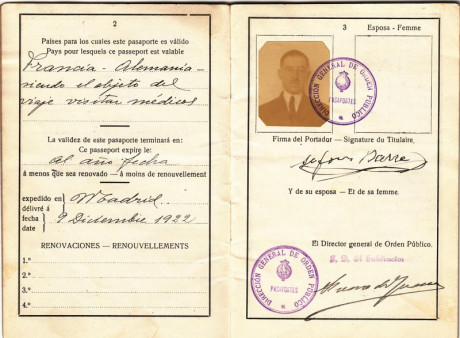 2
Países para los cuales este pasaporte es válido
Pays pour lesquels ce passeport est valable
Francia - Alemania -
siendo el objeto del
viaje visitar médicos
La validez de este pasaporte terminará en:
Ce passeport expire le:
Al año fecha
á menos que sea renovado - à moins de renouvellement
expedido en
délivré á
Madrid
fecha
date
9 Diciembre 1922
RENOVACIONES - RENOUVELLEMENTS
1.º
2.º
3.º
4.º
3
Esposa - Femme
DIRECCIÓN GENERAL DE ORDEN PÚBLICO
PASAPORTES
Firma del Portador - Signature du Titulaire
Y de su esposa - Et de sa femme.
El Director general de Orden Público.
DIRECCIÓN GENERAL DE ORDEN PÚBLICO
PASAPORTES